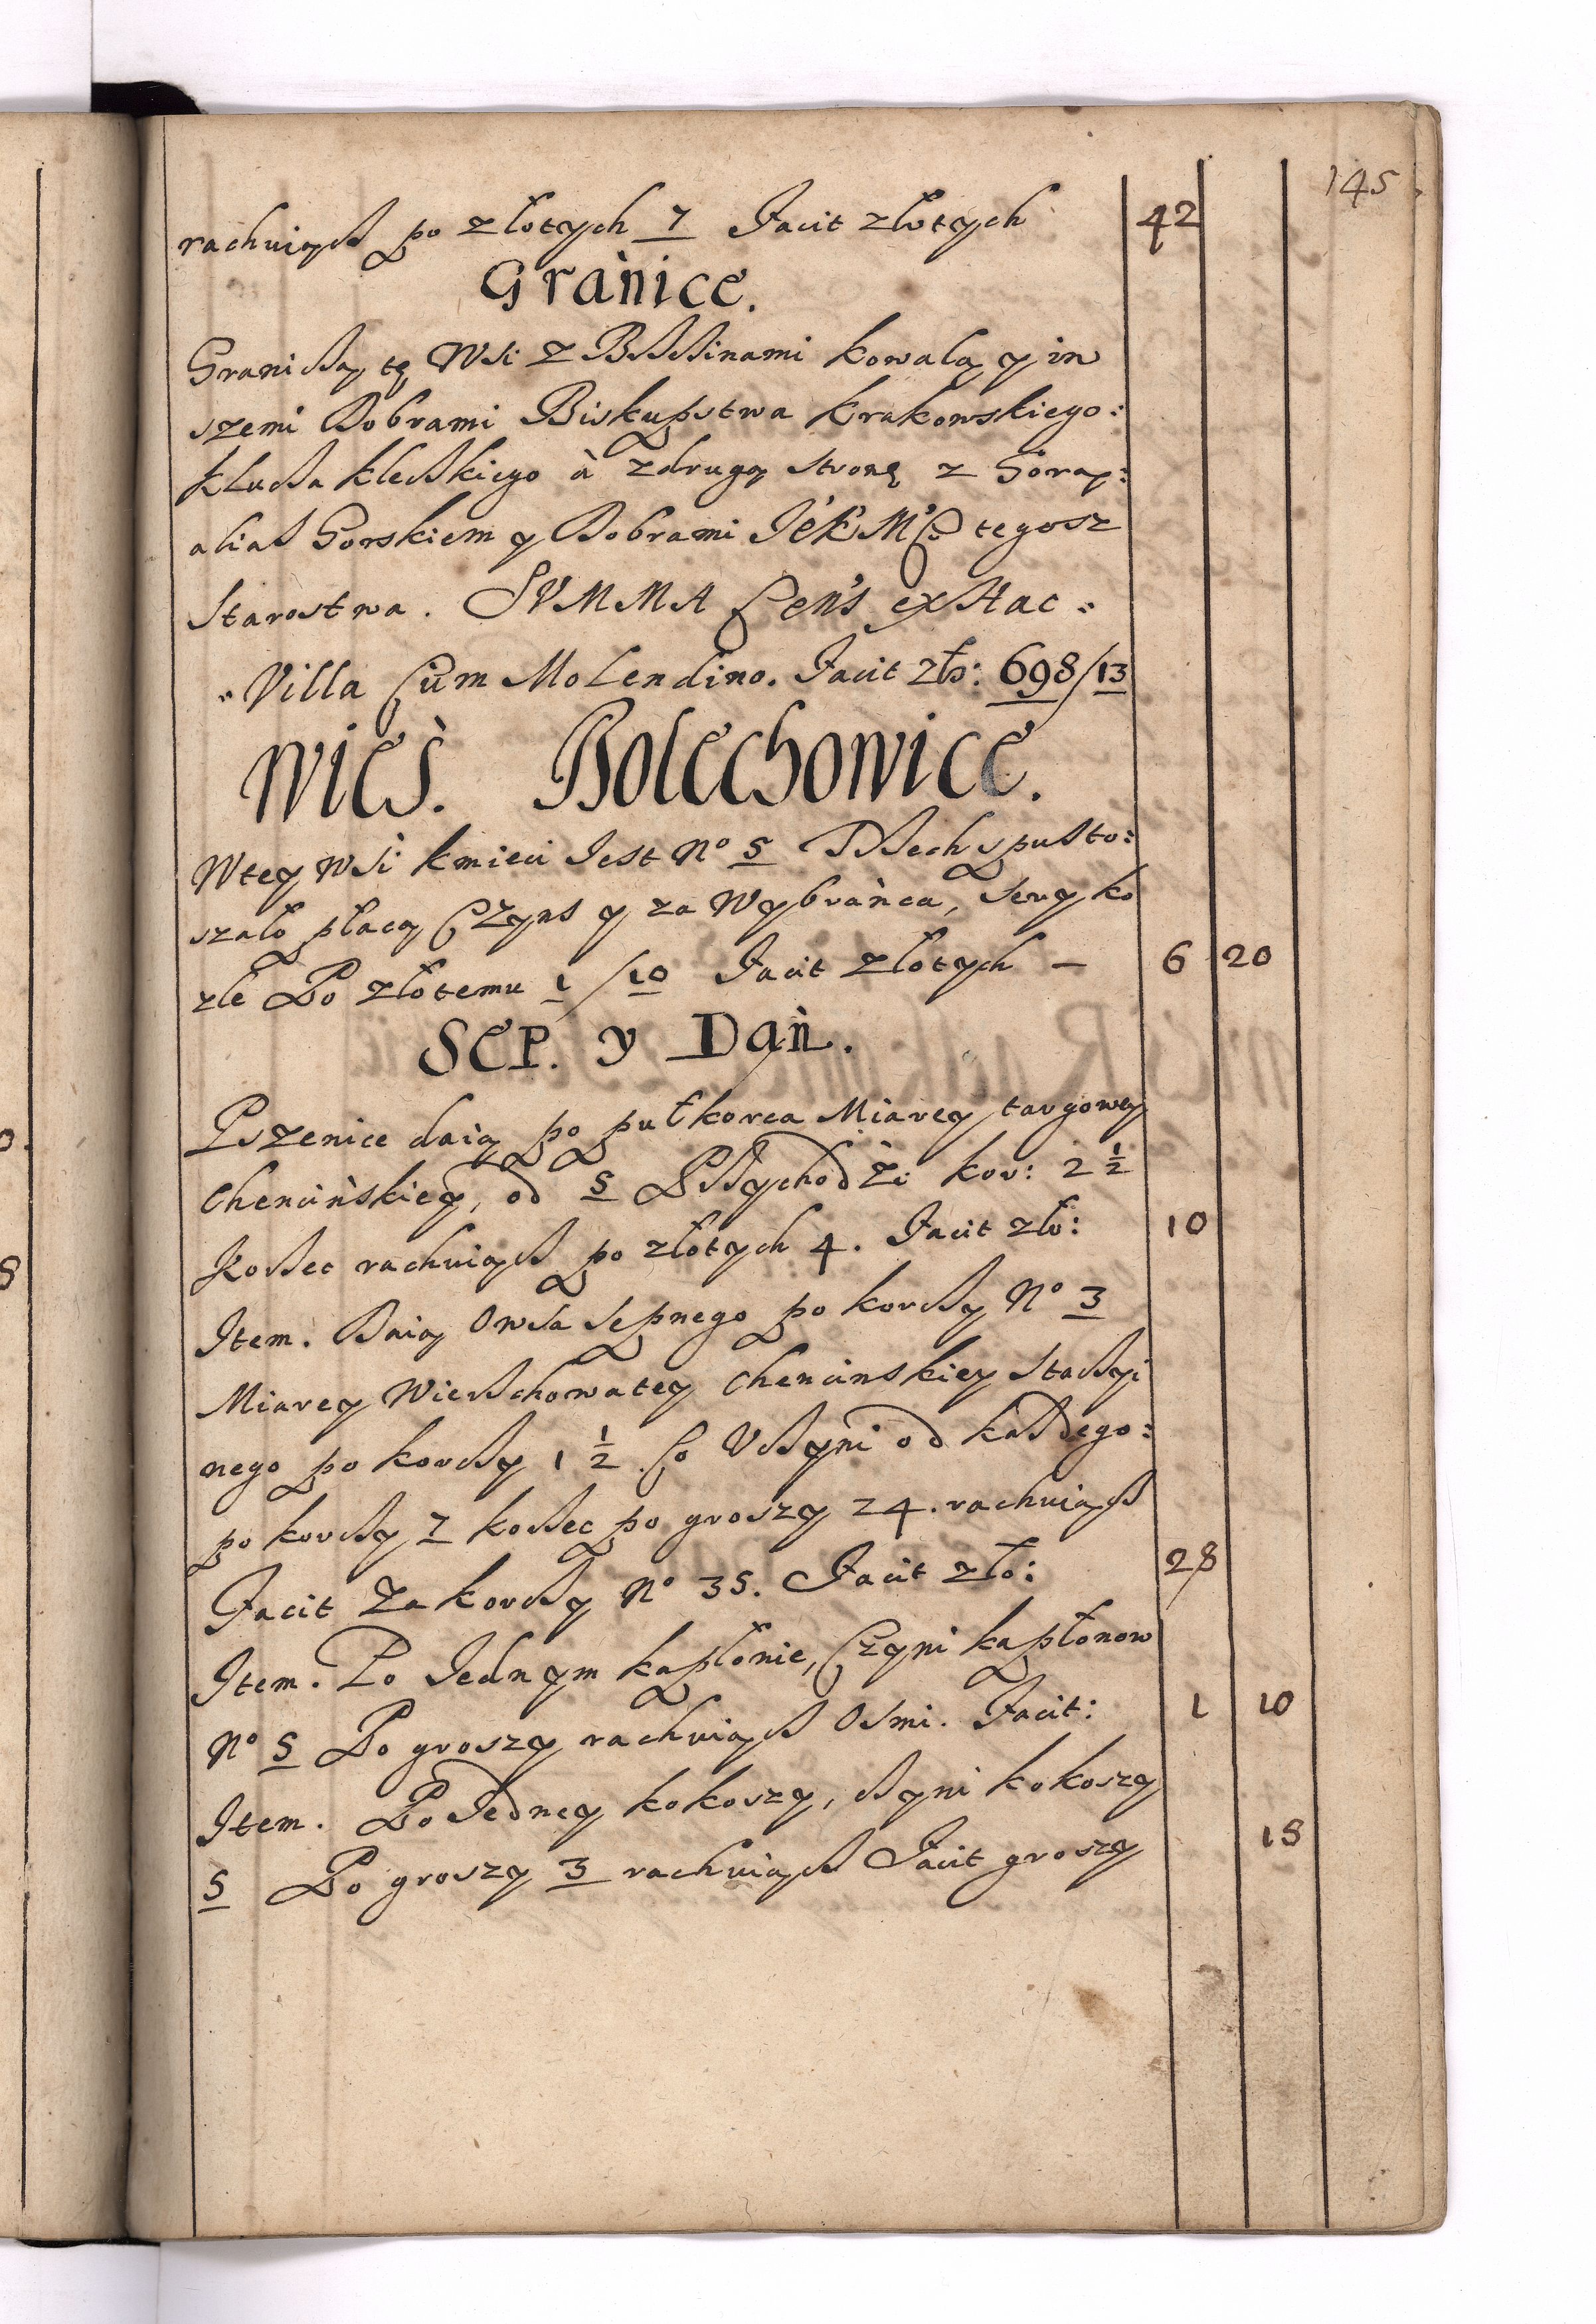 145
rachuiącz po złotych 7 Facit złotych 42
Granice.
Graniczą tę Wsi z Brzezinami kowalą y in
szemi Dobrami Biskupstwa Krakowskiego:
klucza kleckiego à zdrugą stronę z Gorą:
alias Gorskiem y Dobrami JéK M'C tegosz
Starostwa. SVMMA Cen's ex Hac
Villa Cum Molendino. Facit złł: 698/13
Wieś. Bolechowice.
Wtey Wsi kmieci Jest No 5 Trzech spusto:
szało płacą Czyns y za Wybrańca, Sery ko
zle Po złotemu 1/10 Facit złotych — 6 20
SEP. y Dań.
Pszenice daią po pułkorca Miarey targowey
Chencińskiey, od 5 Przychodźi kor: 2 1/2
Korzec rachuiącz po złotych 4. Facit zło: 10
Item. Daią Owsa Sepnego po korczy No 3
Miarey Wierzchowatey Chencinskiey Staczyi
nego po korczy 1 1/2 Co Vczyni od każdego:
po korczy 7 korzec po groszy 24. rachuiącz
Facit Za korczy No 35. Facit zło: 28
Item. Po Jednym kapłonie, Czyni kapłonow
No 5 Po groszy rachuiącz Osmi. Facit: 1 10
Item. Po Jedney kokoszy, czyni kokoszy
5 Po groszy 3 rachuiącz Facit groszy 15